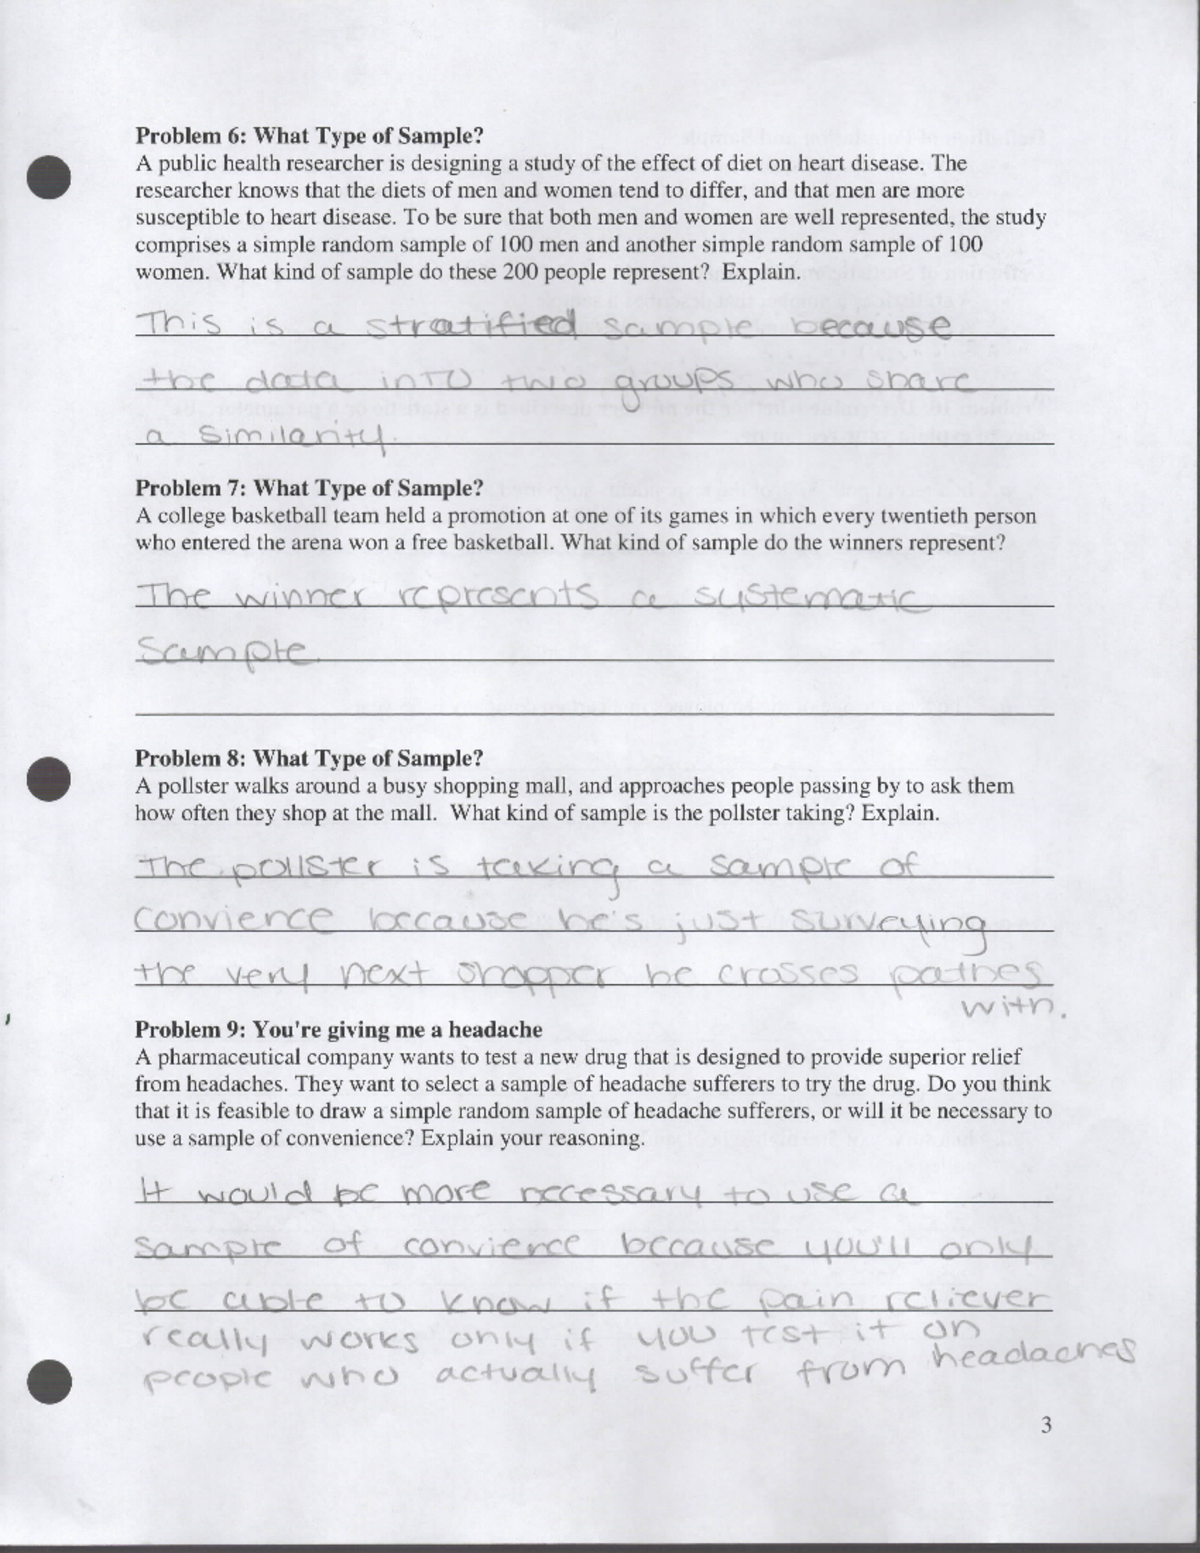 Problem 6: What Type of Sample?
A public health researcher is designing a study of the effect of diet on heart disease. The
researcher knows that the diets of men and women tend to differ, and that men are more
susceptible to heart disease. To be sure that both men and women are well represented, the study
comprises a simple random sample of 100 men and another simple random sample of 100
women. What kind of sample do these 200 people represent? Explain.
This is a stratified sample because
the data into two groups who share
a similarity.
Problem 7: What Type of Sample?
A college basketball team held a promotion at one of its games in which every twentieth person
who entered the arena won a free basketball. What kind of sample do the winners represent?
The winner represents a systematic
Sample.
Problem 8: What Type of Sample?
A pollster walks around a busy shopping mall, and approaches people passing by to ask them
how often they shop at the mall. What kind of sample is the pollster taking? Explain.
The pollster is taking a sample of
convience because he's just surveying
the very next shopper he crosses pathes
with.
Problem 9: You're giving me a headache
A pharmaceutical company wants to test a new drug that is designed to provide superior relief
from headaches. They want to select a sample of headache sufferers to try the drug. Do you think
that it is feasible to draw a simple random sample of headache sufferers, or will it be necessary to
use a sample of convenience? Explain your reasoning.
It would be more necessary to use a
sample of convience because you'll only
be able to know if the pain reliever
really works only if you test it on
people who actually suffer from headaches
3